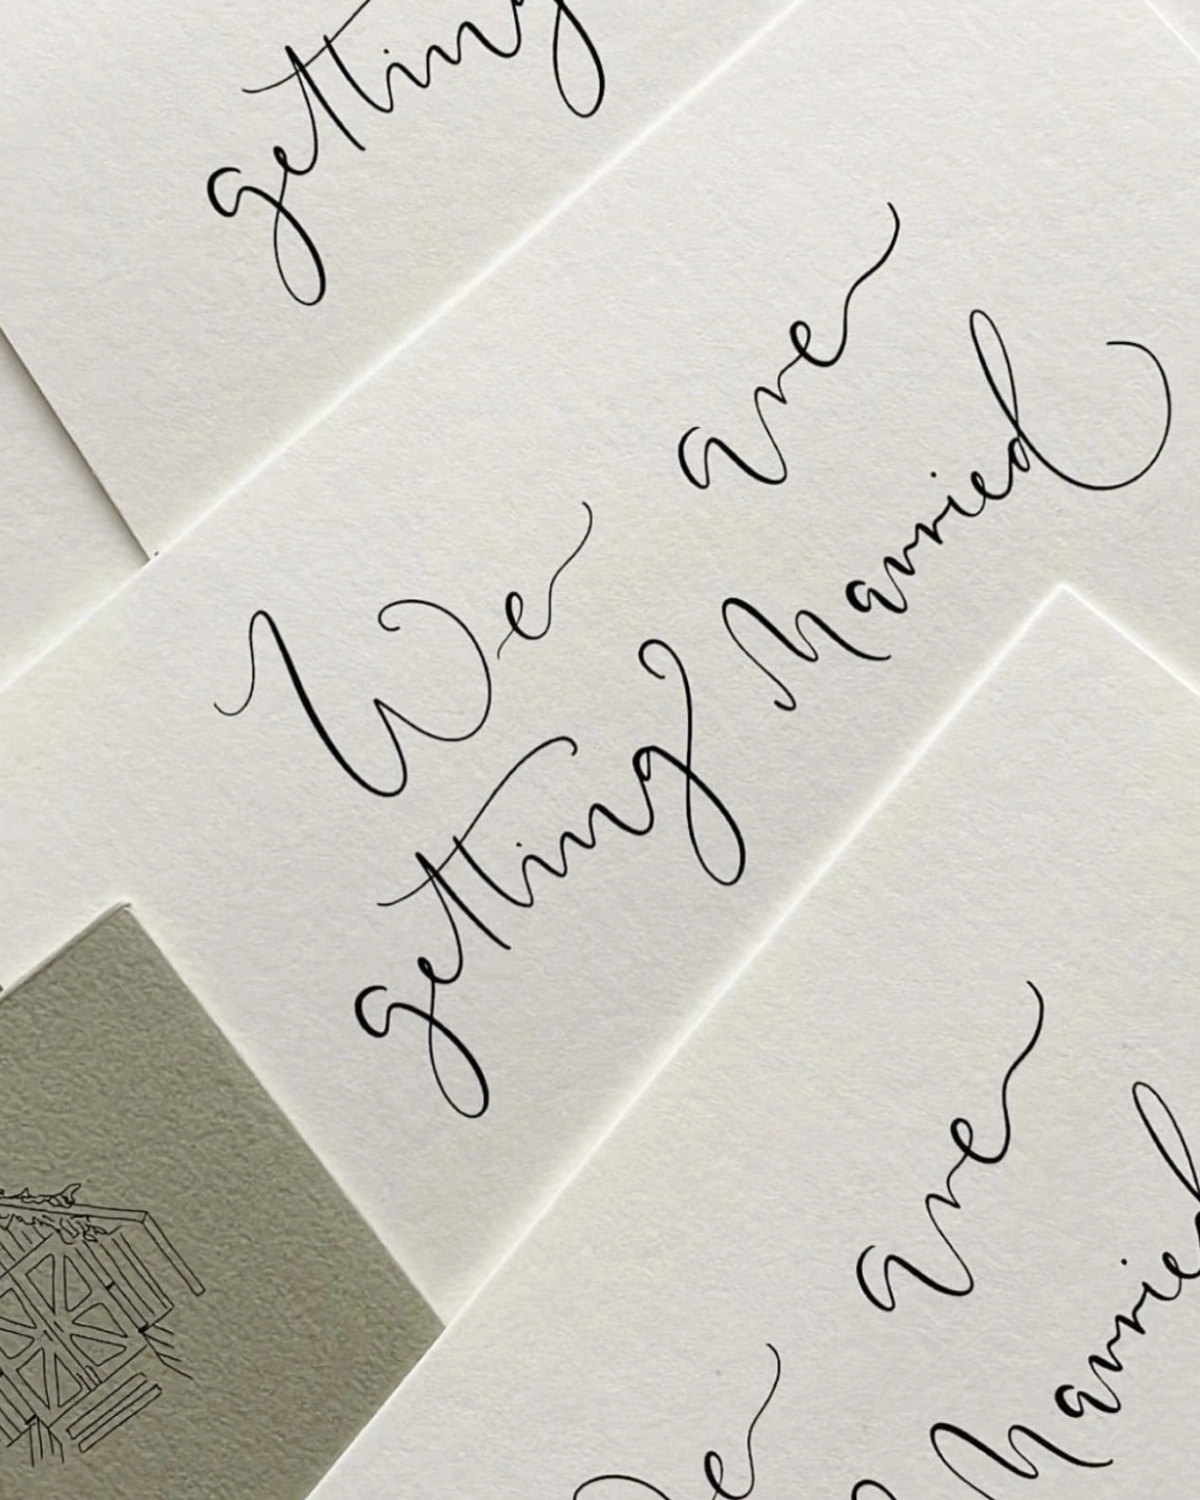 getting
We are
getting Married
are
We Married